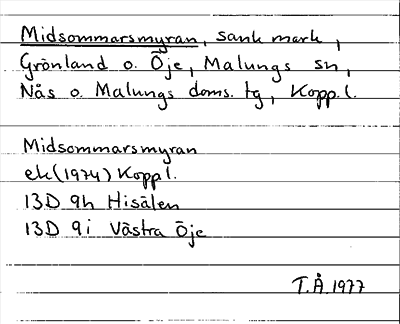 Midsommarsmyran, sank mark,
Grönland o. Öje, Malungs sn,
Nås o. Malungs doms. tg, Kopp. l.
Midsommarsmyran
ek (1974) Kopp l.
13D 9h Hisälen
13D 9i Västra Öje
T.Å. 1977